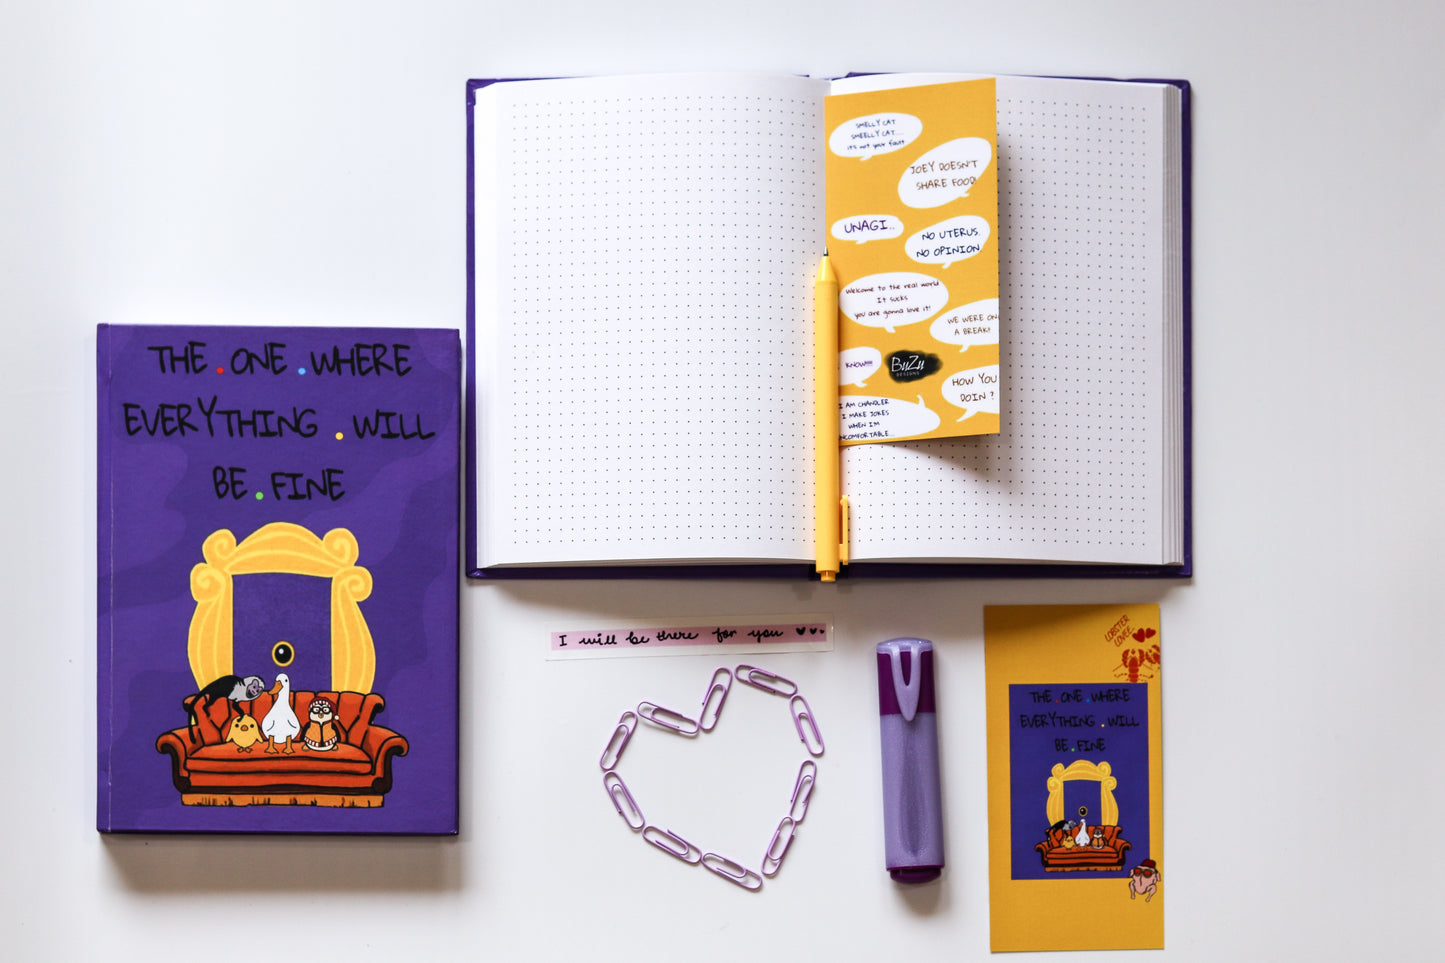 THE.ONE.WHERE
EVERYTHING.WILL
BE.FINE
SMELLY CAT
SMEELLY CAT....
it's not your fault
JOEY DOESN'T
SHARE FOOD!
UNAGI..
NO UTERUS,
NO OPINION
Welcome to the real world
It sucks
you are gonna love it!
WE WERE ON
A BREAK!
KNOW!!!!
BuZu
DESIGNS
HOW YOU
DOIN ?
I AM CHANDLER
I MAKE JOKES
WHEN I'M
NCOMFORTABLE...
I will be there for you
LOBSTER
LOVEE..
THE.ONE.WHERE
EVERYTHING.WILL
BE.FINE